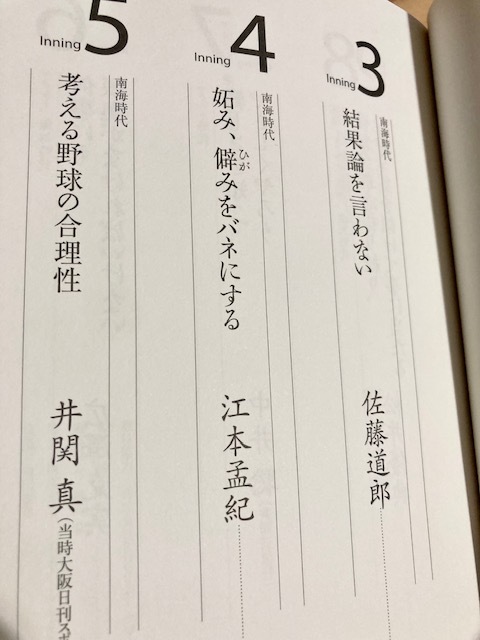 Inning 3
南海時代
結果論を言わない
佐藤道郎
Inning 4
南海時代
妬み、僻みをバネにする
ひが
江本孟紀
Inning 5
南海時代
考える野球の合理性
井関 真(当時大阪日刊スポ